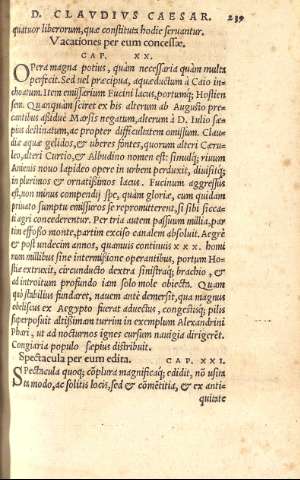 D. CLAVDIVS CAESAR. 239
quatuor liberorum, quæ constituta hodie seruantur.
Vacationes per eum concessæ.
CAP. XX.
OPera magna potius, quàm necessaria quàm multa
perfecit. Sed uel præcipua, aquæductum à Caio in-
choatum. Item emissarium Fucini lacus, portumq; Hostien
sem. Quanquàm sciret ex his alterum ab Augusto pre-
cantibus assidue Marsis negatum, alterum à D. Iulio sæ-
pius destinatum, ac propter difficultatem omissum. Clau-
diæ aquæ gelidos, & uberes fontes, quorum alteri Cæru-
leo, alteri Curtio, & Albudino nomen est: simulq; riuum
Anienis nouo lapideo opere in urbem perduxit, diuisitq;
in plurimos & ornatissimos lacus. Fucinum aggressus
est, non minus compendij spe, quàm gloriæ, cum quidam
priuato sumptu emissuros se repromitterent, si sibi sicca-
ti agri concederentur. Per tria autem passuum millia, par
tim effosso monte, partim exciso canalem absoluit. Aegrè
& post undecim annos, quamuis continuis XXX. homi
num millibus sine intermissione operantibus, portum Ho-
stiæ extruxit, circunducto dextra sinistraq; brachio, &
ad introitum profundo iam solo mole obiecta. Quam
quò stabilius fundaret, nauem antè demersit, qua magnus
obeliscus ex Aegypto fuerat aduectus, congestisq; pilis
superposuit altissimam turrim in exemplum Alexandrini
Phari, ut ad nocturnos ignes cursum nauigia dirigerent.
Congiaria populo sæpius distribuit.
Spectacula per eum edita. CAP. XXI.
SPectacula quoq; cōplura magnificaq; edidit, nō usita
ta modo, ac solitis locis, sed & cōmētitia, & ex anti-
quitate